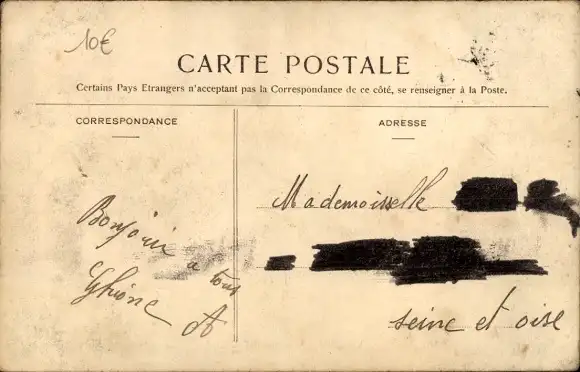 10€
CARTE POSTALE
Certains Pays Etrangers n'acceptant pas la Correspondance de ce côté, se renseigner à la Poste.
CORRESPONDANCE
ADRESSE
Mademoiselle
seine et oise
Bonjour
a tous